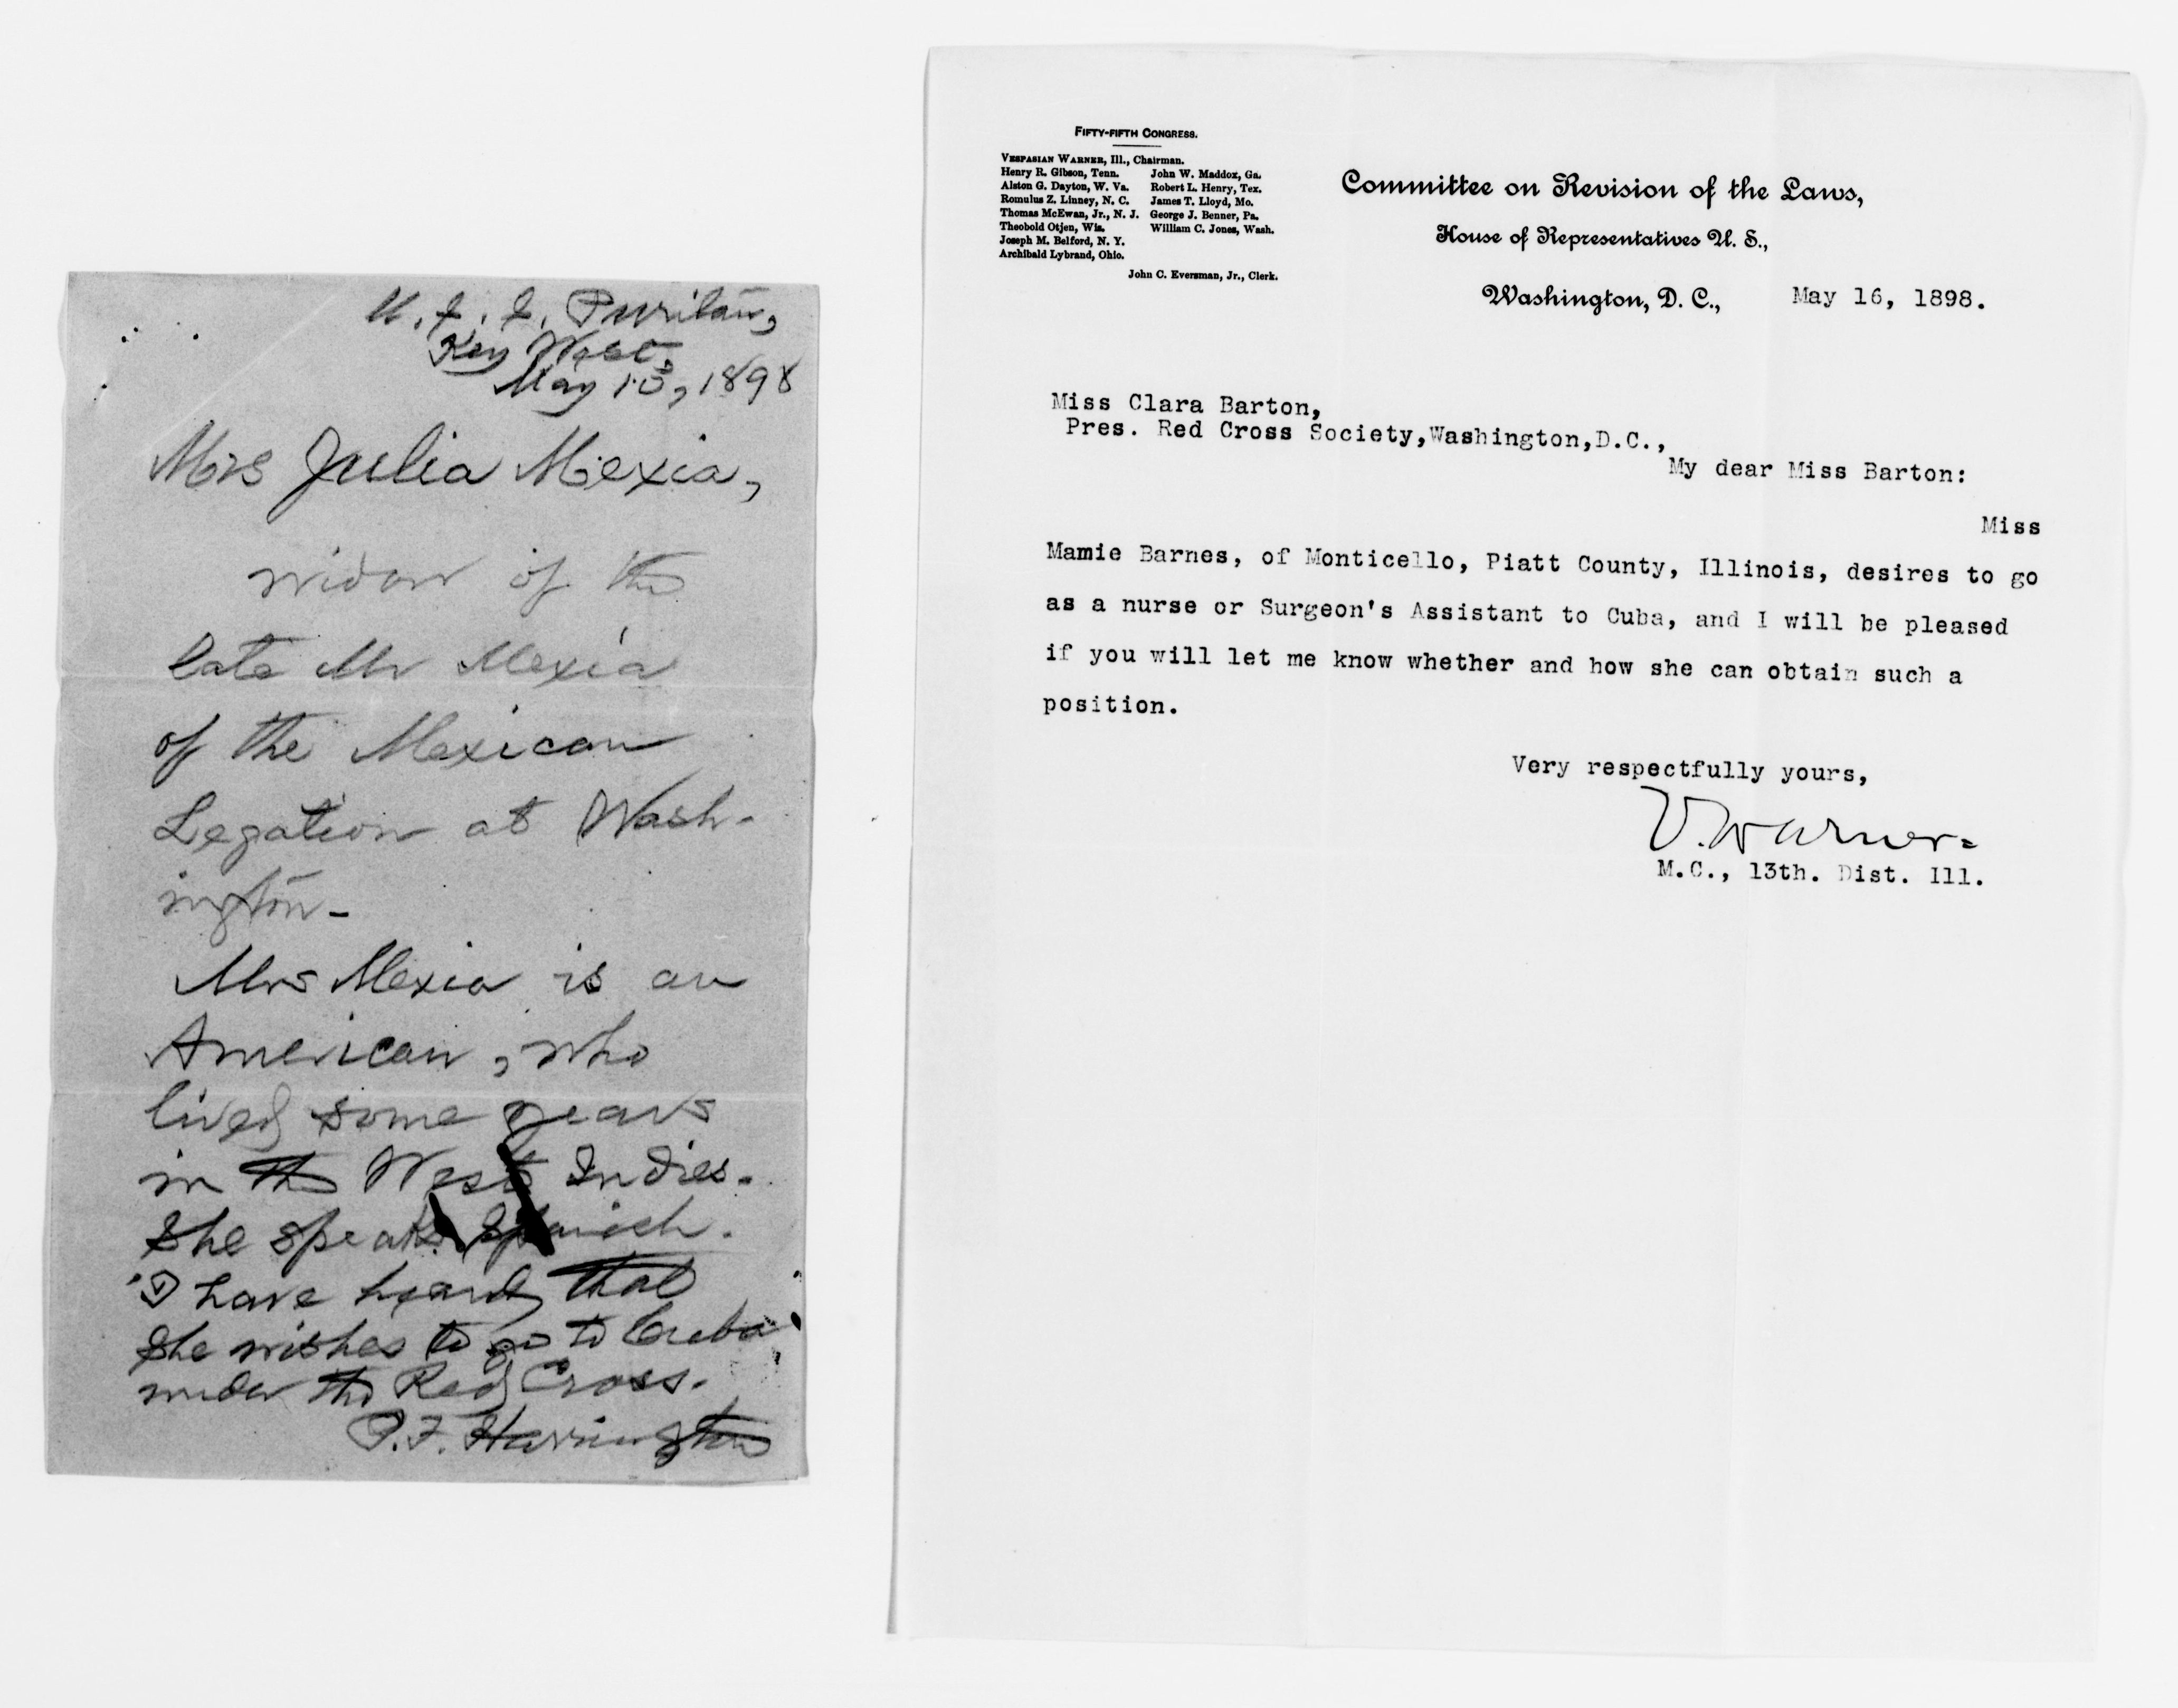 U.S.S. Puritan,
Key West,
May 15, 1898
Mrs Julia Mexia,
widow of the
late Mr Mexia
of the Mexican
Legation at Wash-
ington-
Mrs Mexia is an
American, who
lived some years
in the West Indies.
She speaks Spanish.
I have heard that
she wishes to go to Cuba
under the Red Cross.
P.F. Harrington
FIFTY-FIFTH CONGRESS.
VESPASIAN WARNER, Ill., Chairman.
Henry R. Gibson, Tenn. John W. Maddox, Ga.
Alston G. Dayton, W. Va. Robert L. Henry, Tex.
Romulus Z. Linney, N. C. James T. Lloyd, Mo.
Thomas McEwan, Jr., N. J. George J. Benner, Pa.
Theobold Otjen, Wis. William C. Jones, Wash.
Joseph M. Belford, N. Y.
Archibald Lybrand, Ohio.
John C. Eversman, Jr., Clerk.
Committee on Revision of the Laws,
House of Representatives U. S.,
Washington, D. C., May 16, 1898.
Miss Clara Barton,
Pres. Red Cross Society,Washington,D.C.,
My dear Miss Barton:
Miss
Mamie Barnes, of Monticello, Piatt County, Illinois, desires to go
as a nurse or Surgeon's Assistant to Cuba, and I will be pleased
if you will let me know whether and how she can obtain such a
position.
Very respectfully yours,
V. Warner-
M.C., 13th. Dist. Ill.